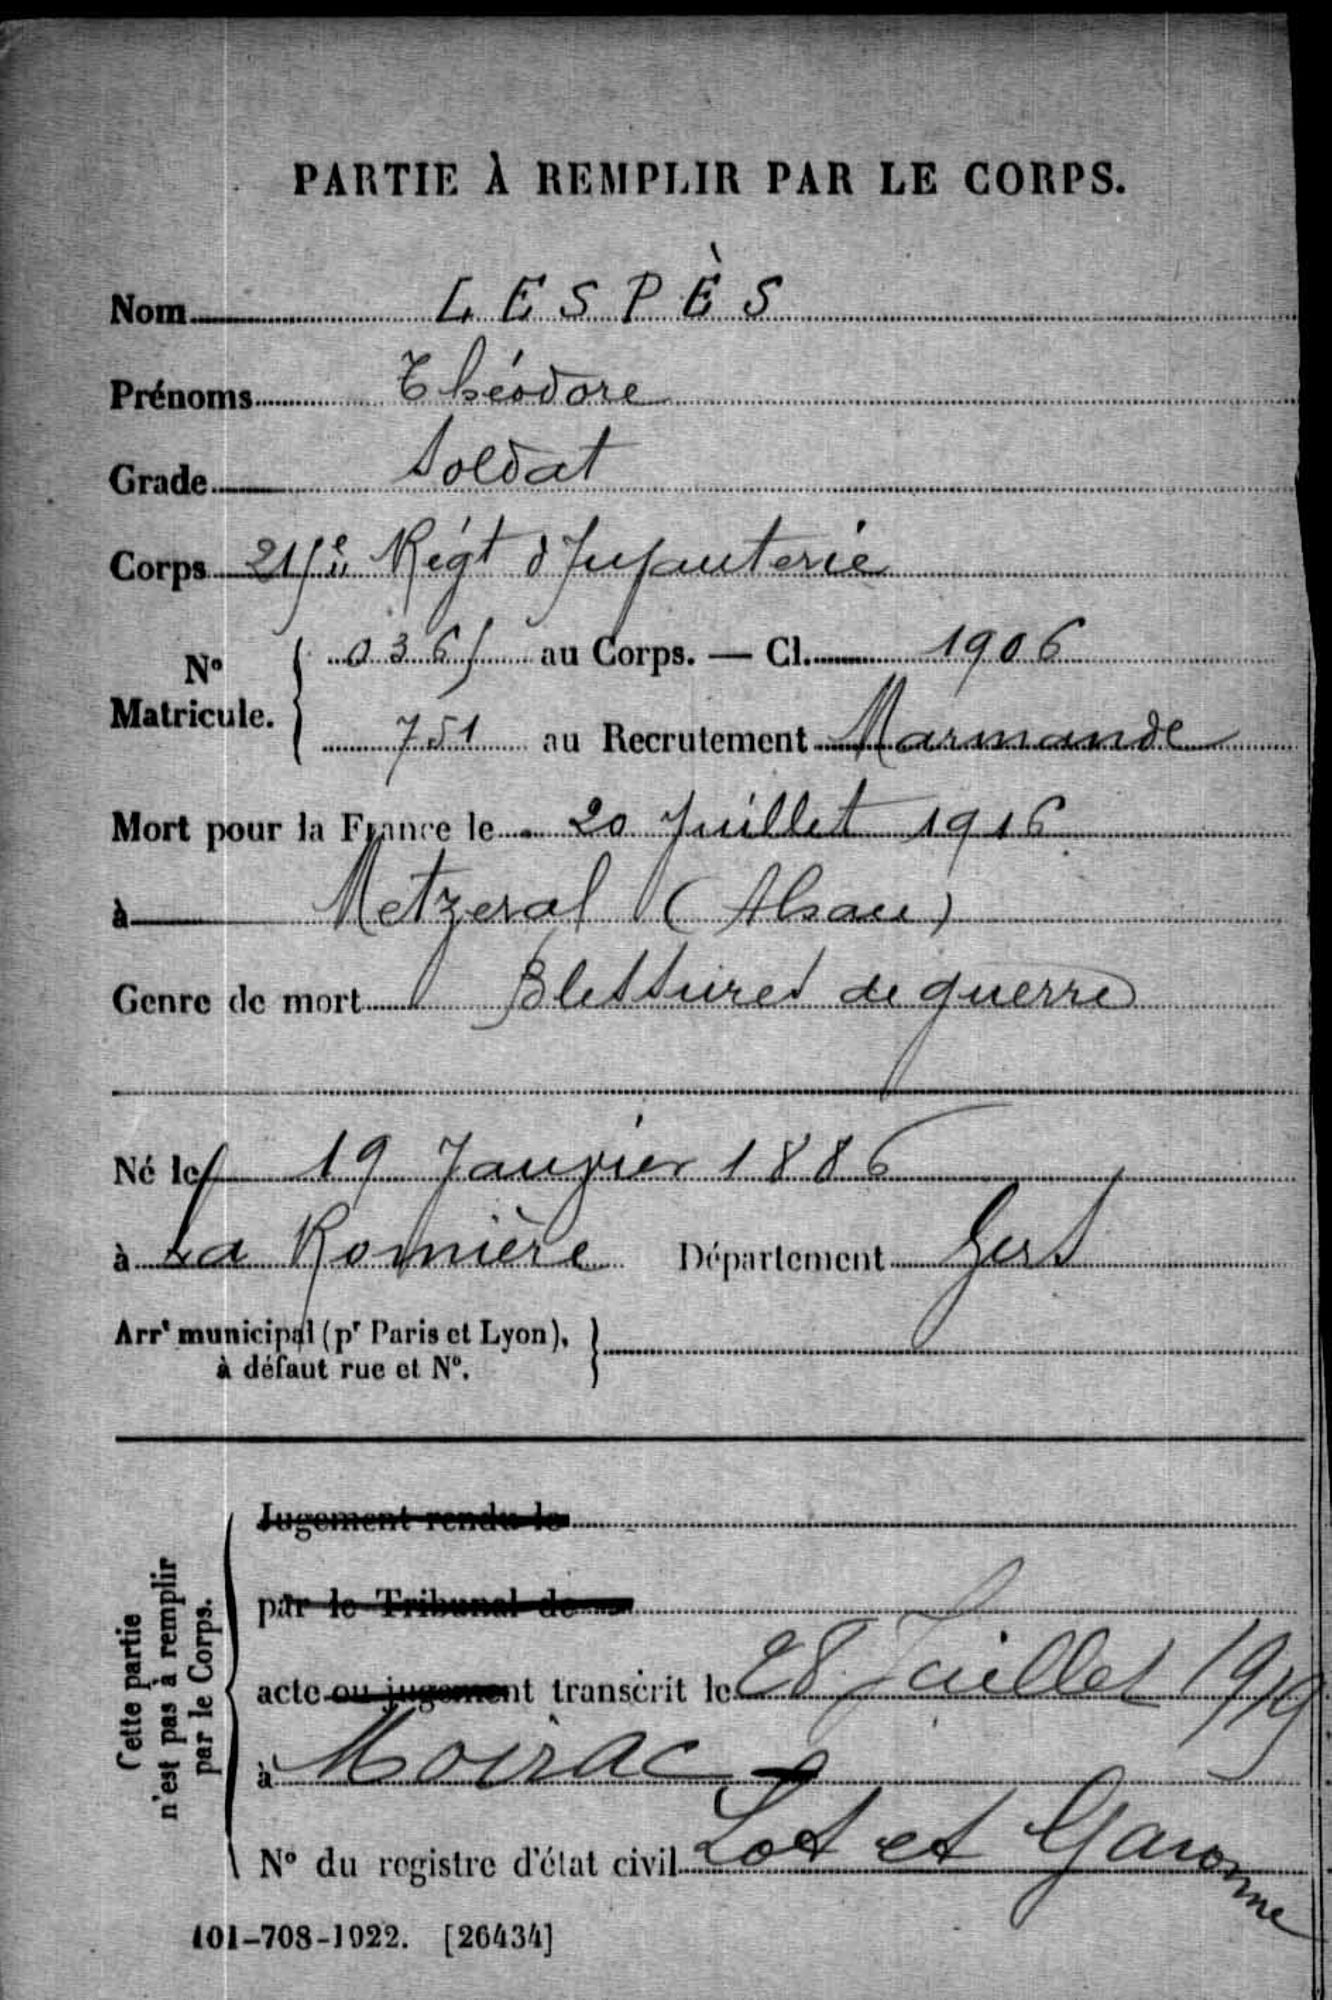 PARTIE À REMPLIR PAR LE CORPS.
Nom LESPÈS
Prénoms Théodore
Grade Soldat
Corps 215e Régt d'Infanterie
No Matricule. { 0365 au Corps. — Cl. 1906
751 au Recrutement Marmande
Mort pour la France le 20 Juillet 1916
à Metzeral (Alsace)
Genre de mort Blessures de guerre
Né le 19 Janvier 1886
à La Romière Département Gers
Arrt municipal (pr Paris et Lyon), à défaut rue et No. }
Cette partie n'est pas à remplir par le Corps.
Jugement rendu le
par le Tribunal de
acte ou jugement transcrit le 28 Juillet 1919
à Moirac
No du registre d'état civil Lot et Garonne
101-708-1922. [26434]